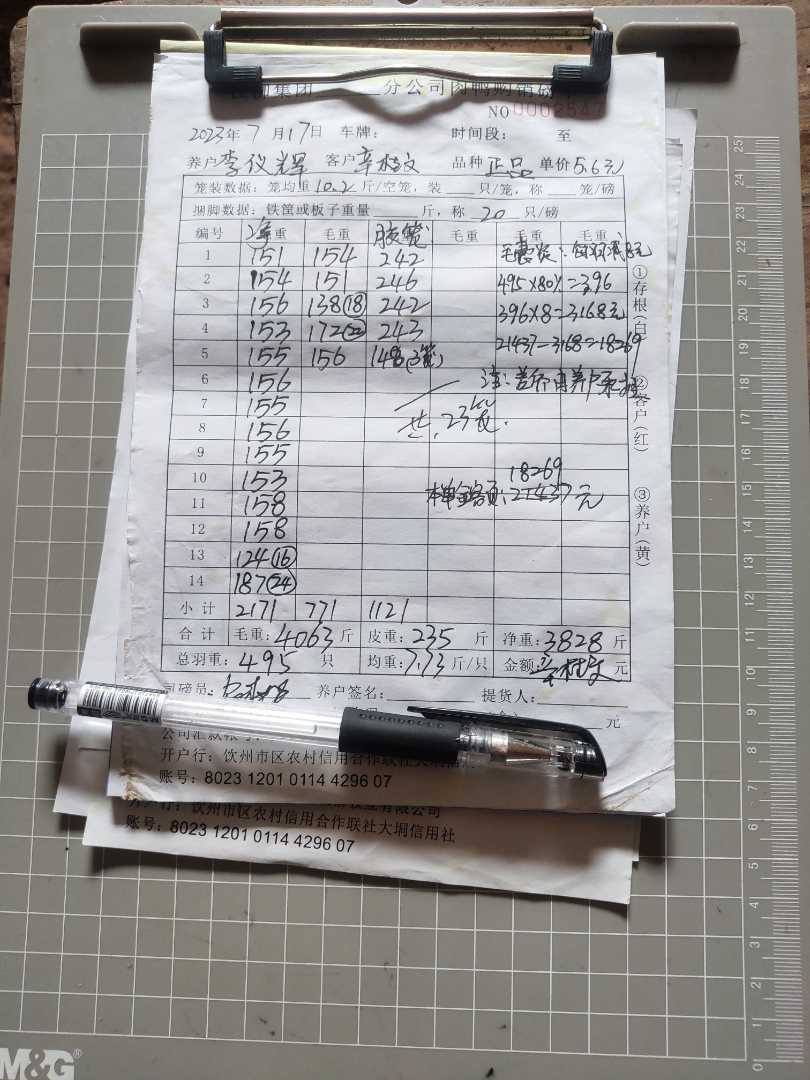 集团 分公司肉鸭购销磅
NO 0002547
2023年 7 月 17日 车牌: 时间段: 至
养户 李仪辉 客户 辛桂文 品种 正品 单价 5.6元
笼装数据: 笼均重 10.2 斤/空笼, 装 只/笼, 称 笼/磅
捆脚数据: 铁筐或板子重量 斤, 称 20 只/磅
编号 净重 毛重 胶笼 毛重 毛重 毛重
1 151 154 242
2 154 151 246 495×80%=396
3 156 138(18) 242 396×8=3168元
4 153 172(22) 243 21437-3168=18269
5 155 156 148(3笼)
6 156
7 155 共:23笼.
8 156
9 155
10 153 18269
11 158 本单金额:21437元
12 158
13 124(16)
14 187(24)
小计 2171 771 1121
合计 毛重: 4063 斤 皮重: 235 斤 净重: 3828 斤
总羽重: 495 只 均重: 7.73 斤/只 金额: 元
司磅员: 养户签名: 提货人:
元
公司汇款帐号:
开户行: 饮州市区农村信用合作联社大垌信
账号: 8023 1201 0114 4296 07
有限公司
开户行: 饮州市区农村信用合作联社大垌信用社
账号: 8023 1201 0114 4296 07
①存根(白)
②客户(红)
③养户(黄)
25
24
23
22
21
20
19
18
17
16
15
14
13
12
11
10
9
8
7
6
5
4
3
2
1
0
M&G